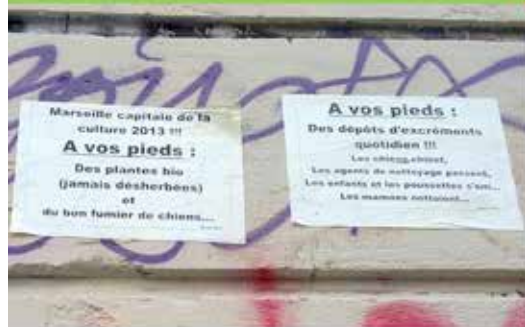 Marseille capitale de la
culture 2013 !!!
A vos pieds :
Des plantes bio
(jamais désherbées)
et
du bon fumier de chiens...
A vos pieds :
Des dépôts d'excréments
quotidien !!!
Les chiens chient,
Les agents de nettoyage passent,
Les enfants et les poussettes s'em...
Les mamans nettoient...